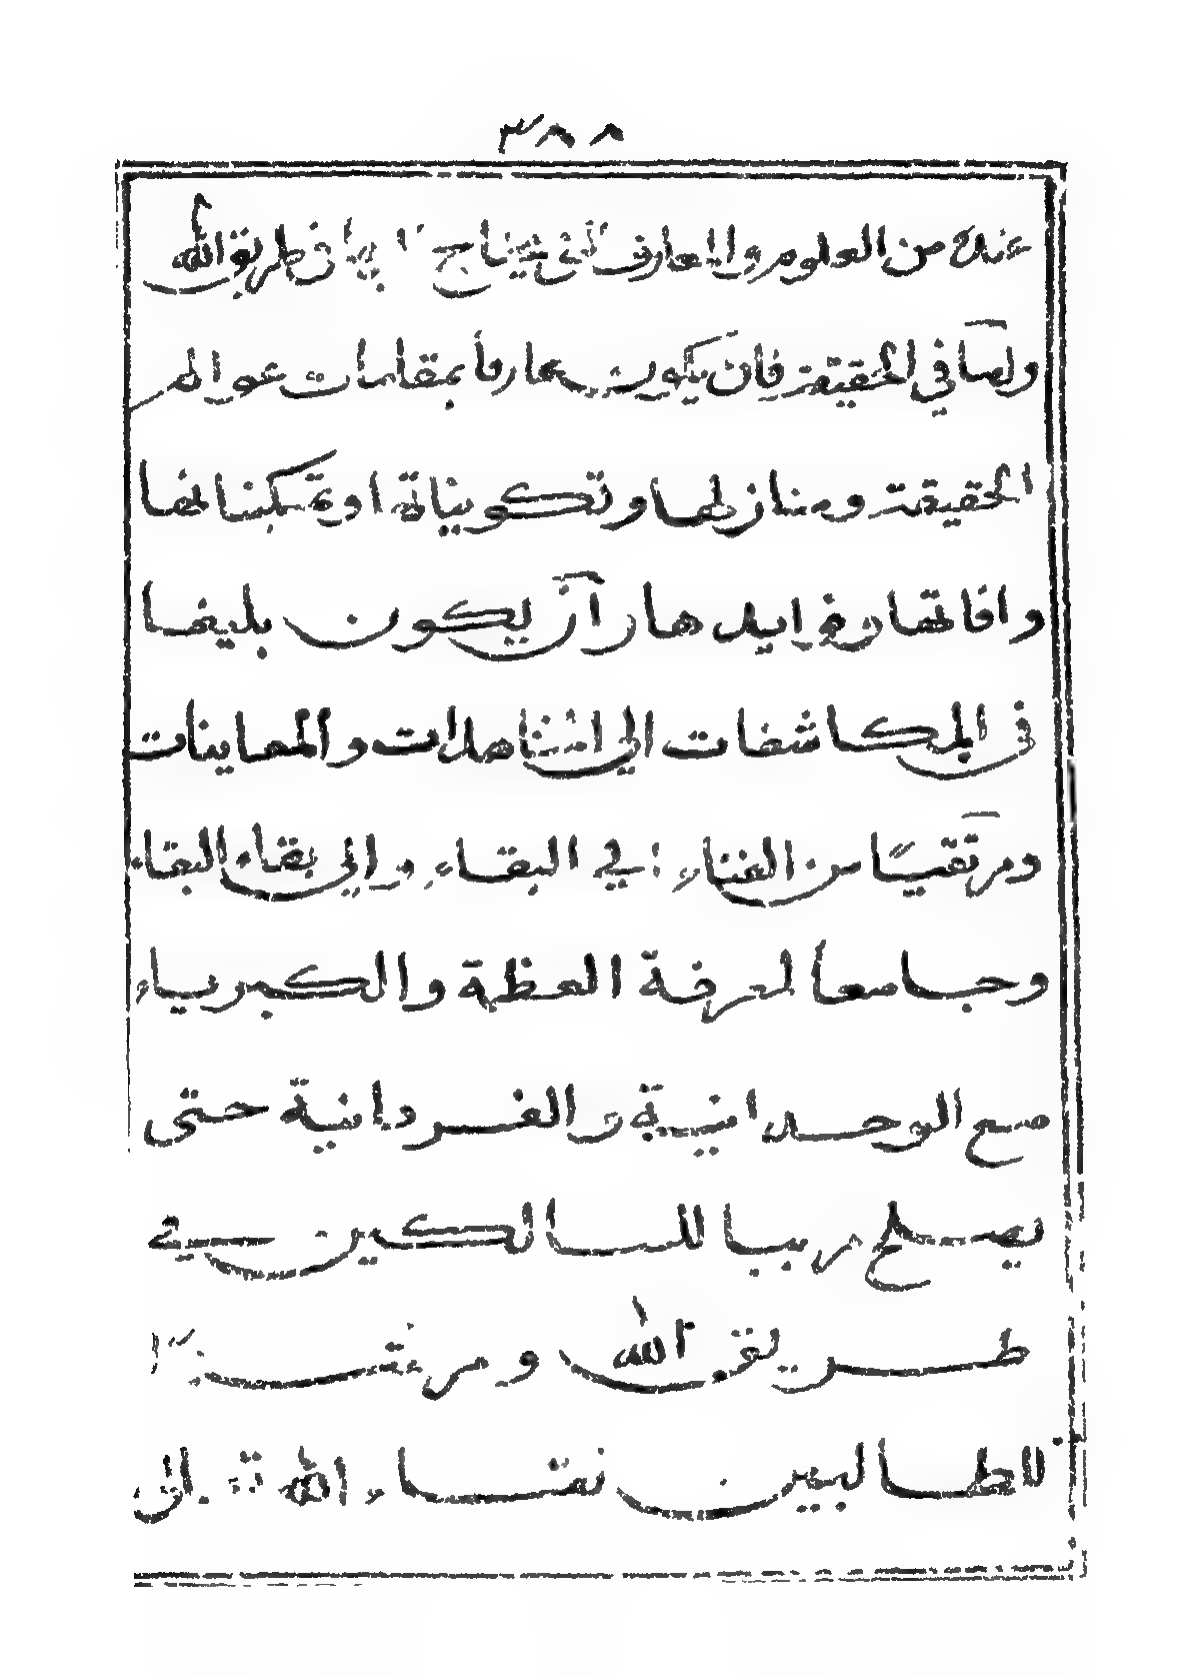 ٣٨٨
عنده من العلوم والمعارف التى يحتاج اليها فى طريق الله
ولما في الحقيقة فان يكون عارفا بمقامات عوالم
الحقيقة ومنازلها وتكويناتة اوتمكيناتها
وافاتها وفوايدها وآن يكون بليغا
في المكاشفات الي المشاهدات والمعاينات
ومرتقيًا من الفناء في البقاء والي بقاء البقاء
وجامعاً لمعرفة العظمة والكبرياء
مع الوحدانية والفردانية حتى
يصلح مربيا للسالكين في
طريق الله ومرشدا
للطالبين لقاء الله تعالى